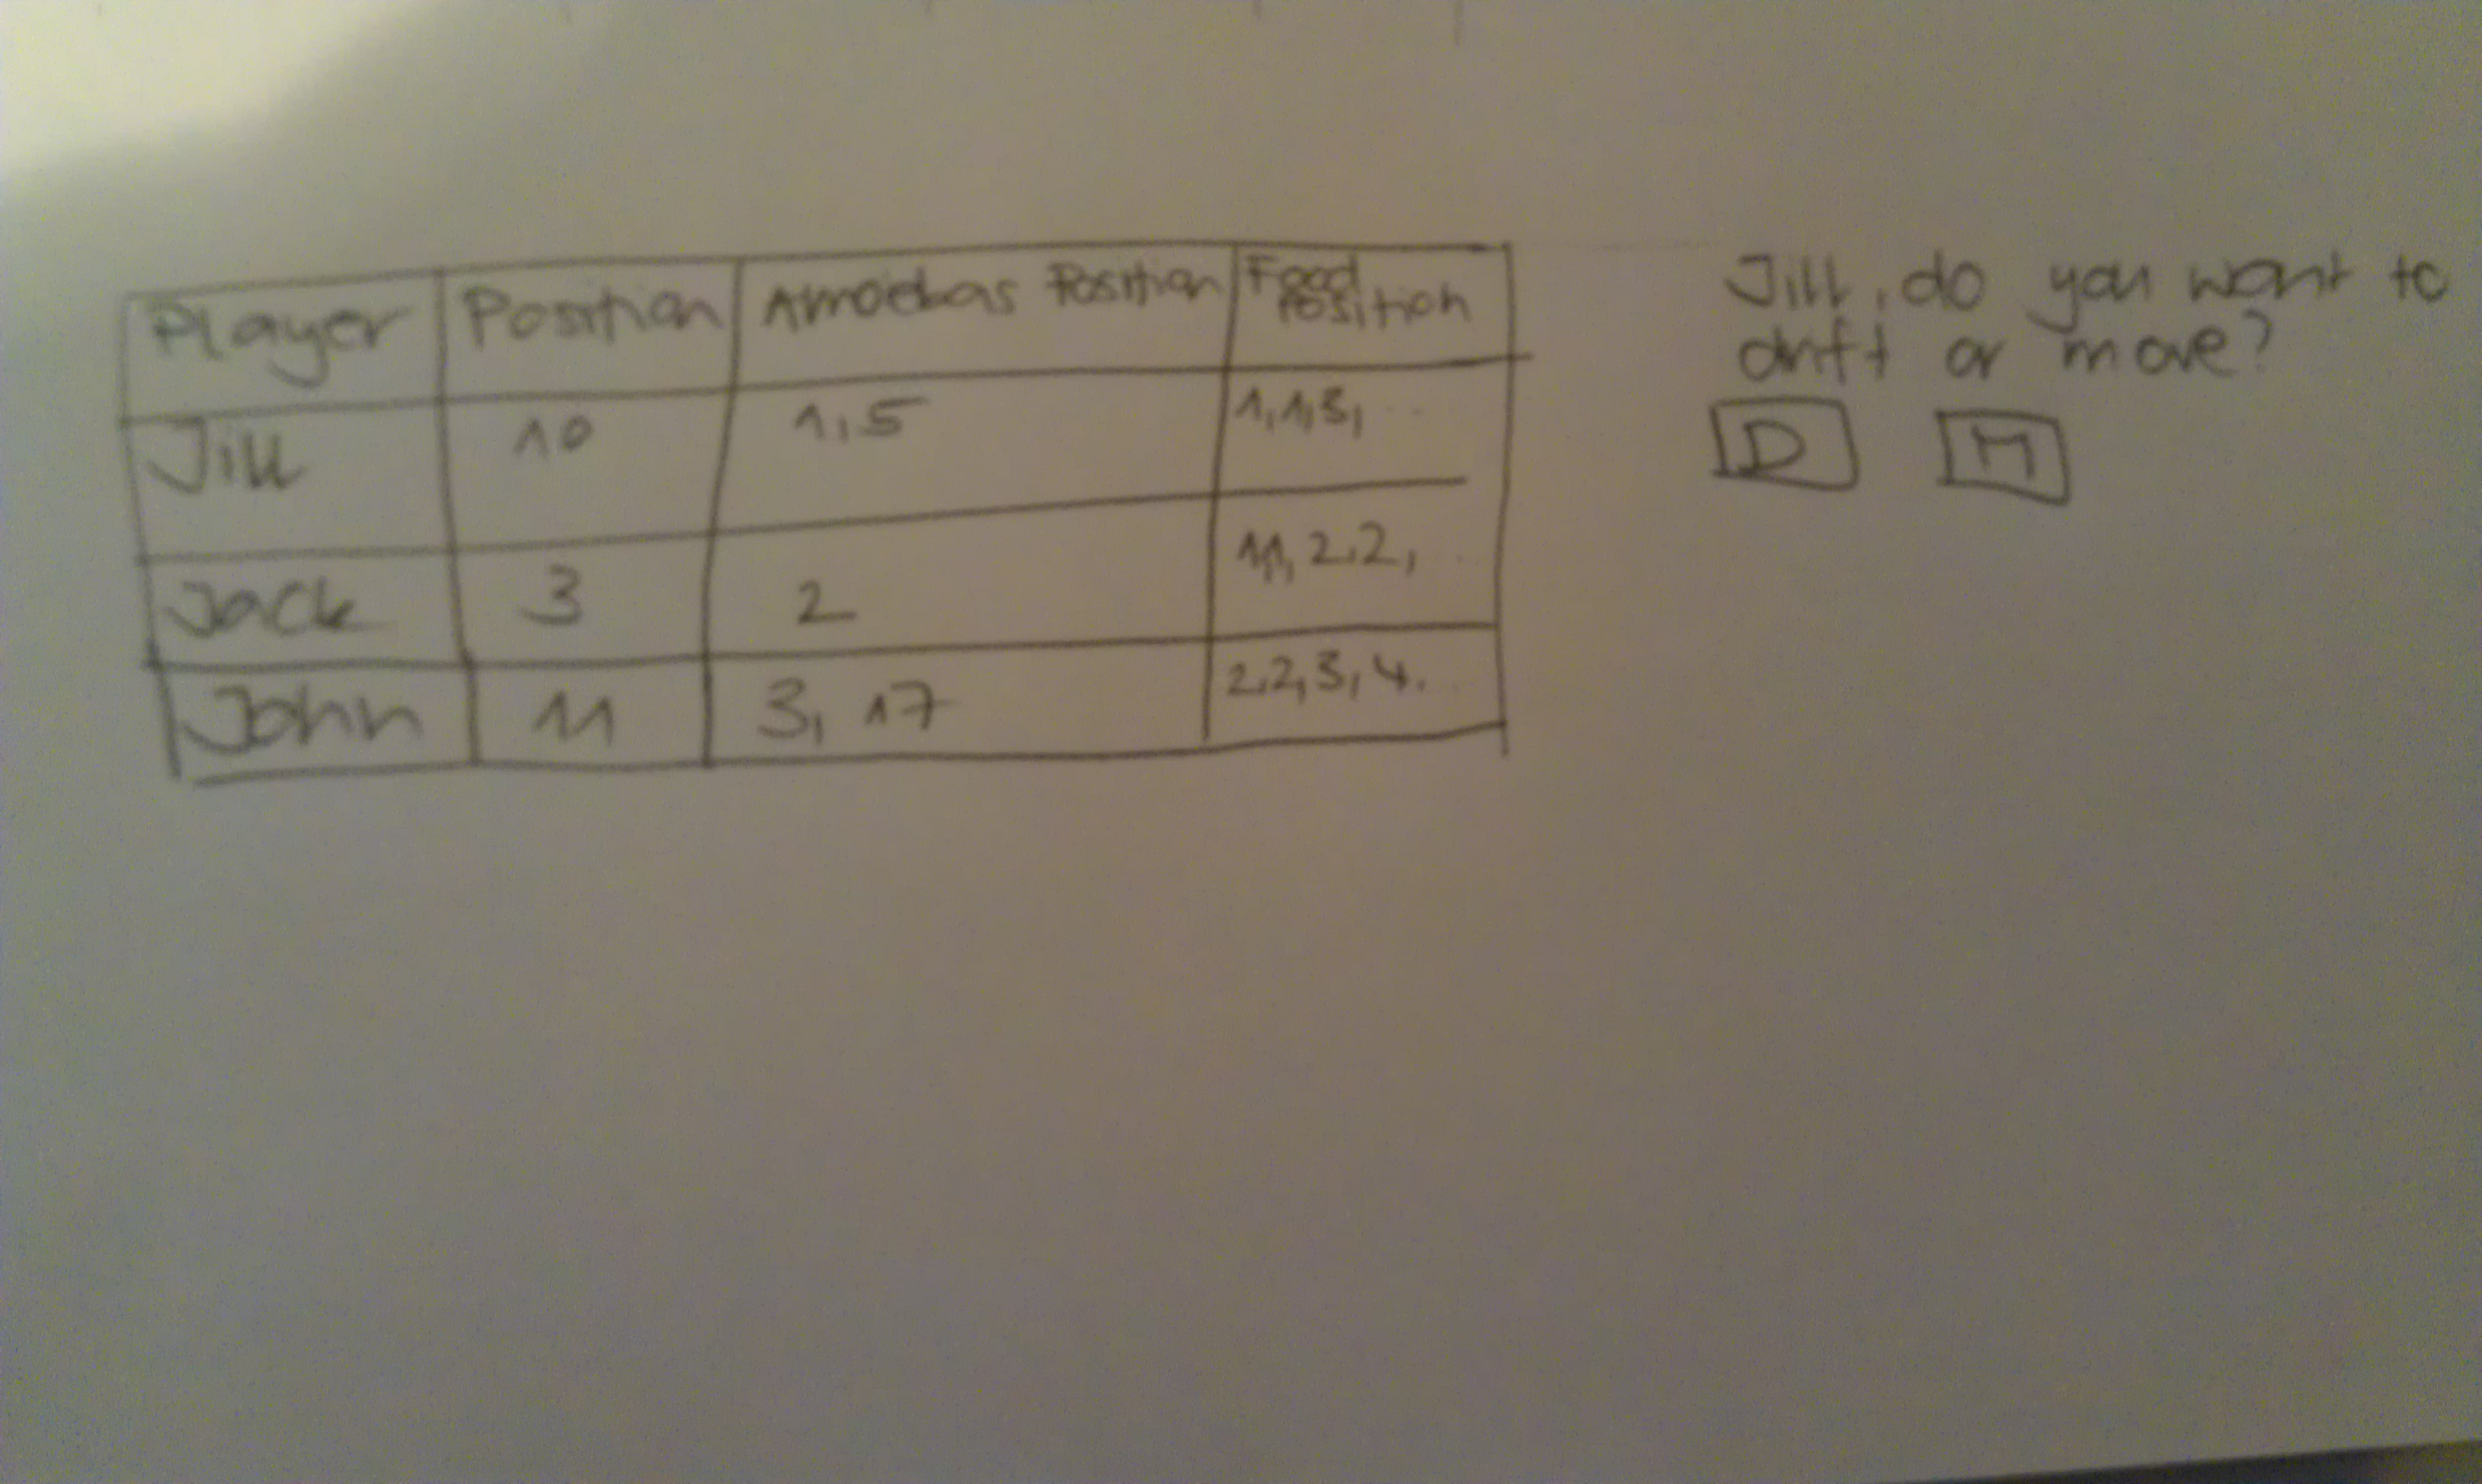 Player Position Amoebas Position Food Position
Jill 10 1,5 1,1,3, ..
Jack 3 2 1,1, 2,2, ..
John 11 3, 17 2,2,3,4...
Jill, do you want to
drift or move?
D M